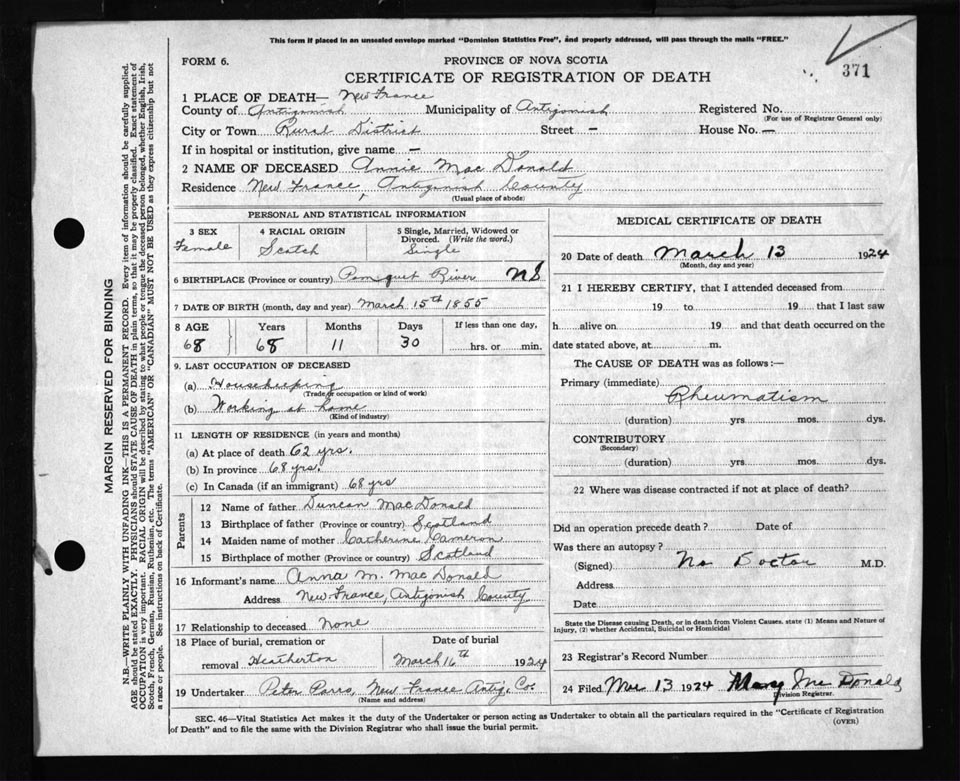 This form if placed in an unsealed envelope marked "Dominion Statistics Free", and properly addressed, will pass through the mails "FREE."
371
FORM 6.
PROVINCE OF NOVA SCOTIA
CERTIFICATE OF REGISTRATION OF DEATH
1 PLACE OF DEATH— New France
County of Antigonish Municipality of Antigonish Registered No.
(For use of Registrar General only)
City or Town Rural District Street — House No. —
If in hospital or institution, give name —
2 NAME OF DECEASED Annie MacDonald
Residence New France, Antigonish County
(Usual place of abode)
MARGIN RESERVED FOR BINDING
N.B.—WRITE PLAINLY WITH UNFADING INK—THIS IS A PERMANENT RECORD. Every item of information should be carefully supplied.
AGE should be stated EXACTLY. PHYSICIANS should STATE CAUSE OF DEATH in plain terms, so that it may be properly classified. Exact statement of
OCCUPATION is very important. RACIAL ORIGIN will be described by stating to what people or tongue the deceased person belonged, whether English, Irish,
Scotch, French, German, Russian, Ruthenian, etc. The terms "AMERICAN" OR "CANADIAN" MUST NOT BE USED as they express citizenship but not
a race or people. See instructions on back of Certificate.
PERSONAL AND STATISTICAL INFORMATION
3 SEX
Female
4 RACIAL ORIGIN
Scotch
5 Single, Married, Widowed or
Divorced. (Write the word.)
Single
6 BIRTHPLACE (Province or country) Pomquet River NS
7 DATE OF BIRTH (month, day and year) March 15th 1855
8 AGE Years Months Days If less than one day,
68 68 11 30 hrs. or min.
9. LAST OCCUPATION OF DECEASED
(a) Housekeeping
(Trade or occupation or kind of work)
(b) Working at home
(Kind of industry)
11 LENGTH OF RESIDENCE (in years and months)
(a) At place of death 62 yrs.
(b) In province 68 yrs.
(c) In Canada (if an immigrant) 68 yrs
Parents
12 Name of father Duncan MacDonald
13 Birthplace of father (Province or country) Scotland
14 Maiden name of mother Catherine Cameron
15 Birthplace of mother (Province or country) Scotland
16 Informant's name Anna M. MacDonald
Address New France, Antigonish County
17 Relationship to deceased None
18 Place of burial, cremation or Date of burial
removal Heatherton March 16th 1924
19 Undertaker Peter Parro, New France Antig. Co.
(Name and address)
MEDICAL CERTIFICATE OF DEATH
20 Date of death March 13 1924
(Month, day and year)
21 I HEREBY CERTIFY, that I attended deceased from
19 to 19 that I last saw
h alive on 19 and that death occurred on the
date stated above, at m.
The CAUSE OF DEATH was as follows:—
Primary (immediate)
Rheumatism
(duration) yrs mos. dys.
CONTRIBUTORY
(Secondary)
(duration) yrs mos. dys.
22 Where was disease contracted if not at place of death?
Did an operation precede death? Date of
Was there an autopsy?
(Signed) No Doctor M.D.
Address
Date
State the Disease causing Death, or in death from Violent Causes, state (1) Means and Nature of
Injury, (2) whether Accidental, Suicidal or Homicidal
23 Registrar's Record Number
24 Filed 13 1924 Mary Mc Donald
Division Registrar.
SEC. 46—Vital Statistics Act makes it the duty of the Undertaker or person acting as Undertaker to obtain all the particulars required in the "Certificate of Registration
of Death" and to file the same with the Division Registrar who shall issue the burial permit.
(OVER)